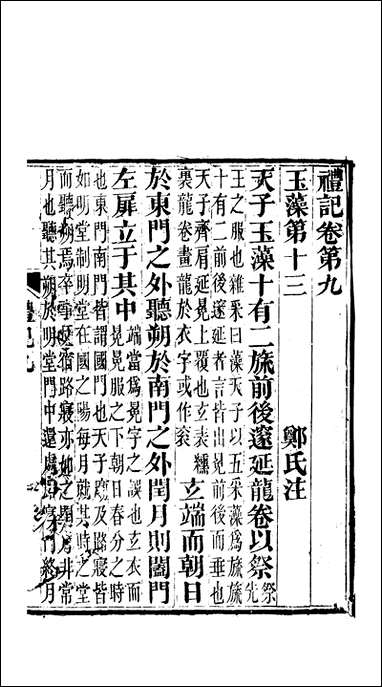 禮記卷第九
玉藻第十三 鄭氏注
天子玉藻十有二旒前後邃延龍卷以祭祭先
王之服也雜采曰藻天子以五采藻為旒旒
十有二前後邃延者言皆出冕前後而垂也
天子齊肩延冕上覆也玄表纁
裏龍卷畫龍於衣字或作袞 玄端而朝日
於東門之外聽朔於南門之外閏月則闔門
左扉立于其中端當為冕字之誤也玄衣而
冕冕服之下朝日春分之時
也東門南門皆謂國門也天子廟及路寢皆
如明堂制明堂在國之陽每月就其時之堂
而聽朔焉卒事宿路寢亦如之閏月非常
月也聽其朔於明堂門中還處路寢門終月
禮記九